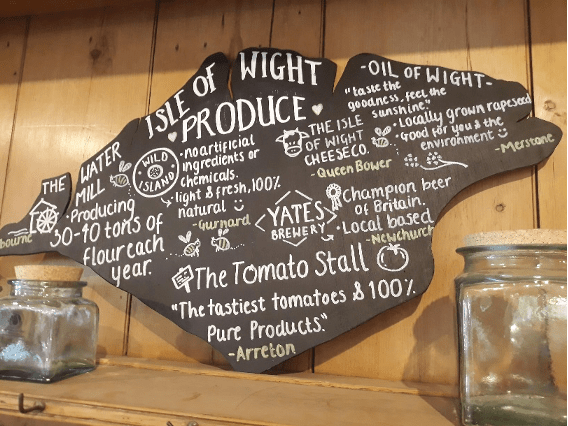 ISLE OF WIGHT
PRODUCE
THE
WATER
MILL
Producing
30-40 tons of
flour each
year.
WILD
ISLAND
• no artificial
ingredients or
chemicals.
light & fresh, 100%
natural
- Gurnard
THE ISLE
OF WIGHT
CHEESE CO.
- Queen Bower
- OIL OF WIGHT -
"taste the
goodness, feel the
sunshine"
• Locally grown rapeseed
• Good for you & the
environment
- Merstone
YATES
BREWERY
Champion beer
of Britain.
• Local based
- Newchurch
The Tomato Stall
"The tastiest tomatoes & 100%
Pure Products."
- Arreton